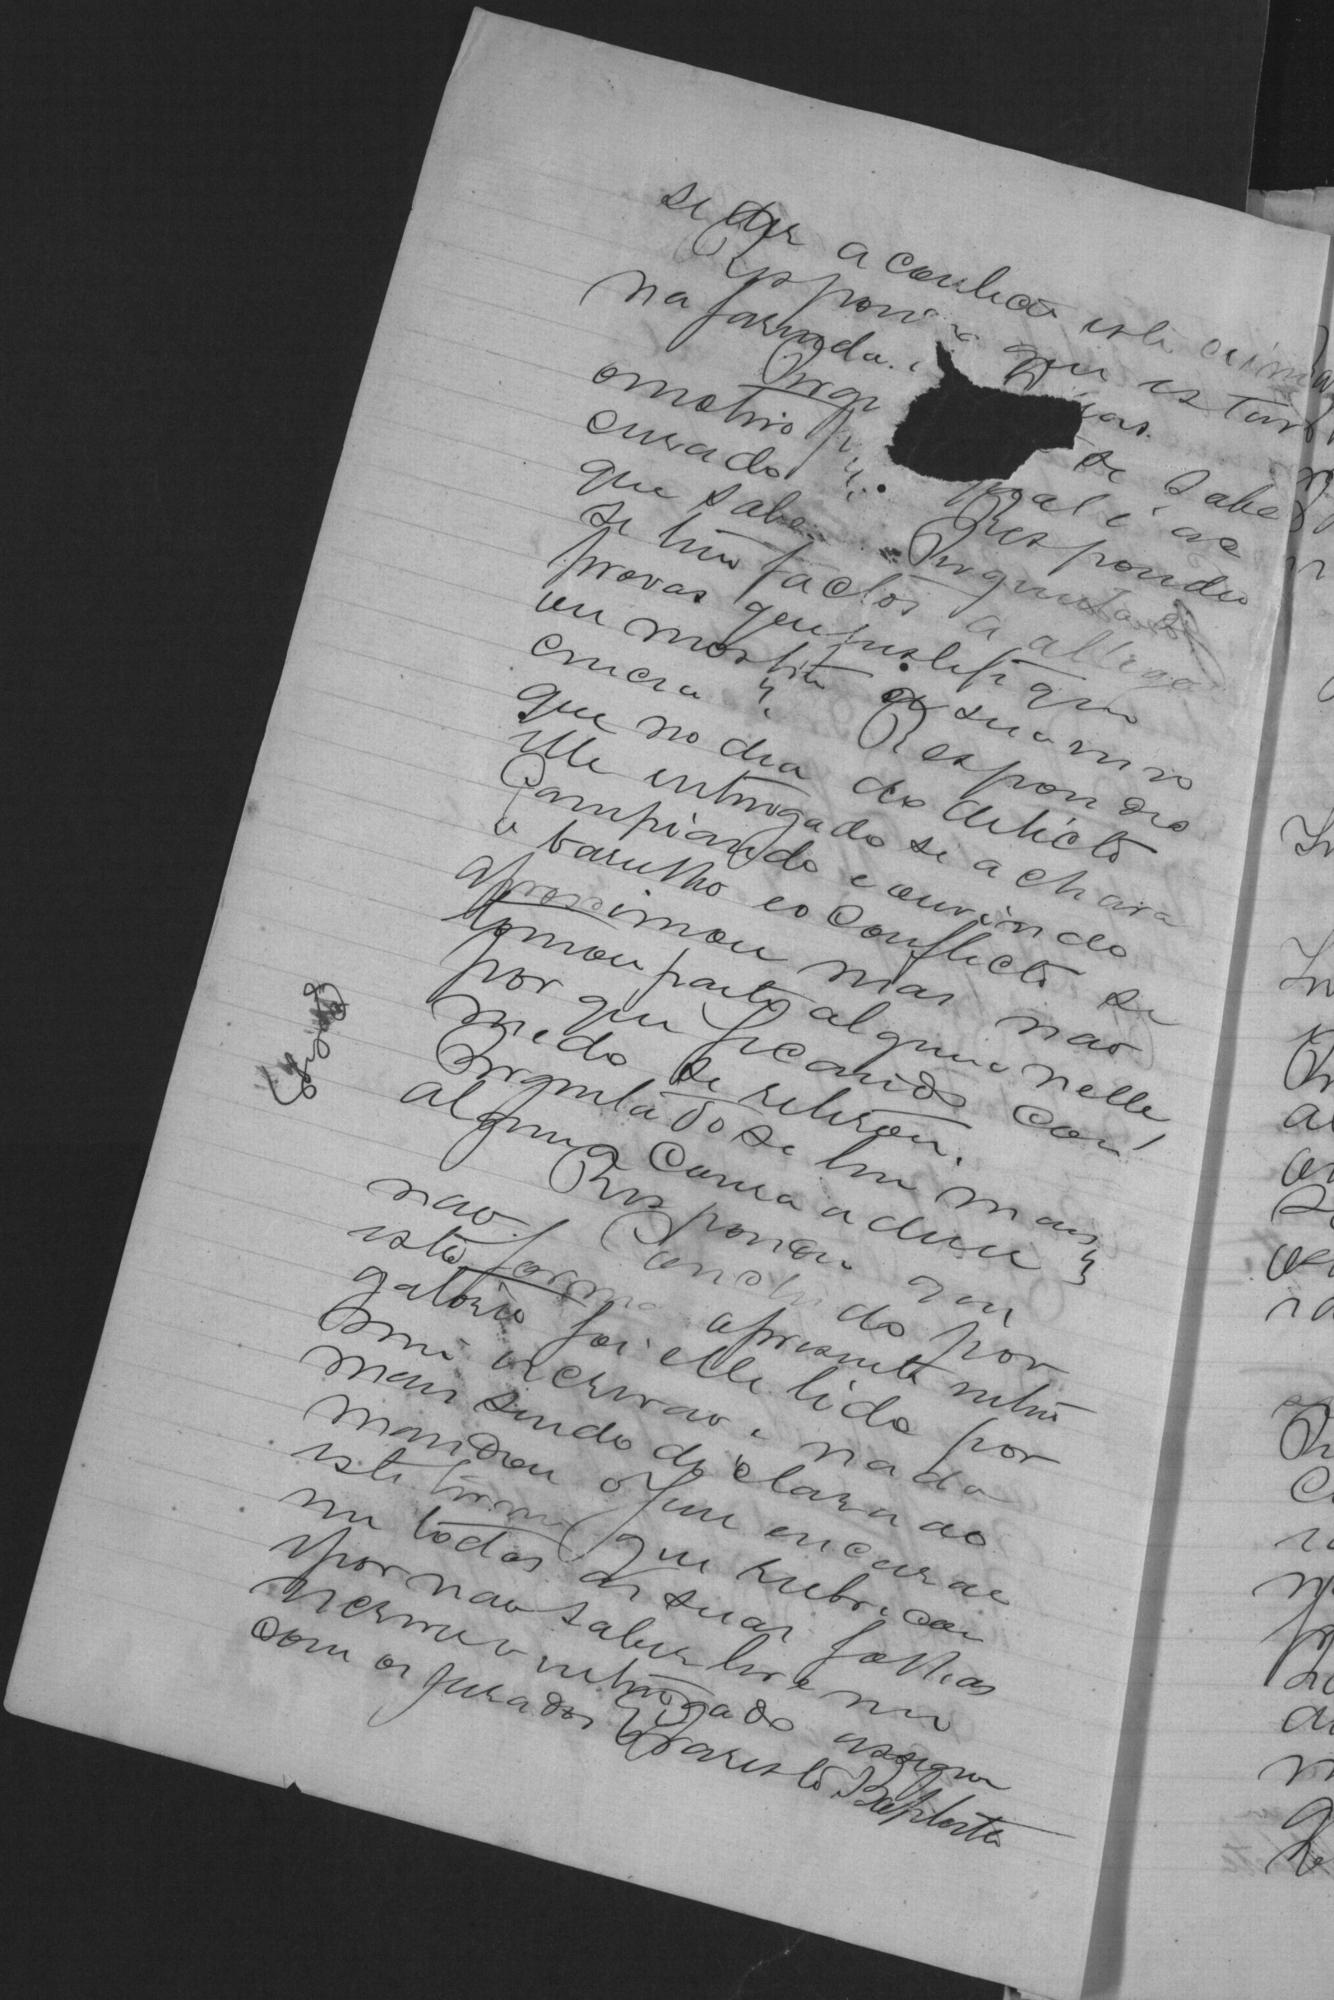 se der a conhecer este crime
Respondeo que estava
na fazenda
Pergu de sabe
o motivo p qual é ac
cusado? Respondeo
que sabe. Perguntado
se tem factos a allegar
provas que justifiquem
ou mostrem a sua inno
cencia? Respondeo
que no dia do delicto
elle interrogado se achava
campiando e ouvindo
o barulho e o conflicto se
aproximou mas não
tomou parte alguma nelle,
por que ficando com
medo se retirou.
Perguntado se tem mais
alguma cousa a dizer?
Respondeu que
não. Concluido por
esta forma o presente interro
gatorio foi elle lido por
mim escrivão e nada
mais sendo declarado
mandou o Juiz encerrar
este termo que rubricou
em todas as suas folhas
e por não saber ler e nem
escrever o interrogado assigna
com os jurados Evaristo Baptista